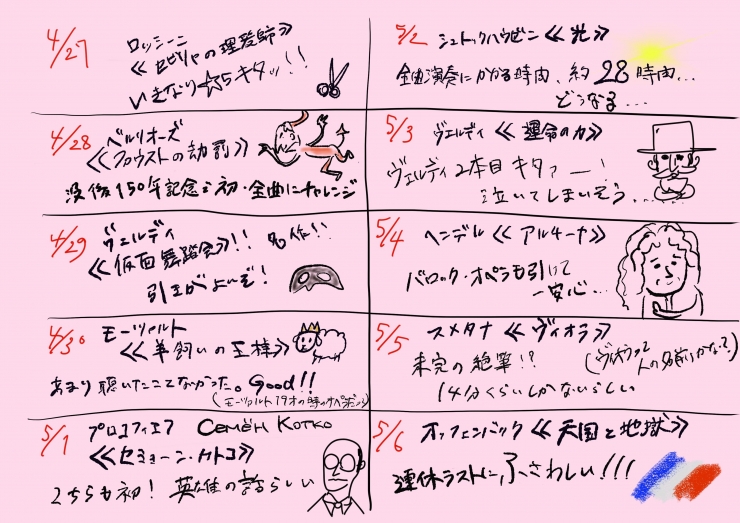 4/27
ロッシーニ
≪セビリャの理髪師≫
いきなり☆5キタッ!!
4/28
ベルリオーズ
≪ファウストの劫罰≫
没後150年記念で初・全曲にチャレンジ
4/29
ヴェルディ
≪仮面舞踏会≫!! 名作!!
引きがよいぞ!
4/30
モーツァルト
≪羊飼いの王様≫
あまり聴いたことなかった。Good!!
(モーツァルト19才の時のオペラ)
5/1
プロコフィエフ СЕМЁН КОТКО
≪セミョーン・カトコ≫
こちらも初! 英雄の話らしい
5/2
シュトックハウゼン ≪光≫
全曲演奏にかかる時間、約28時間...
どうなる...
5/3
ヴェルディ ≪運命の力≫
ヴェルディ2本目キタァー!
泣いてしまいそう......
5/4
ヘンデル ≪アルチーナ≫
バロック・オペラも引けて
一安心...
5/5
スメタナ ≪ヴィオラ≫
未完の絶筆!?
(ヴィオラって
人の名前じゃない?)
14分くらいしかないらしい
5/6
オッフェンバック ≪天国と地獄≫
連休ラストにふさわしい!!!